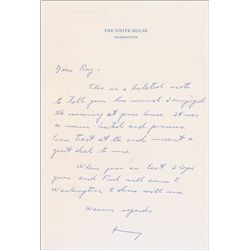 THE WHITE HOUSE
WASHINGTON
Dear Roy -
This is a belated note
to tell you how much I enjoyed
the evening at your house. It was
so warm-hearted and generous.
Your toast at the end meant a
great deal to me.
When you are next I hope
you and Fred will come to
Washington to dine with me
Warm regards